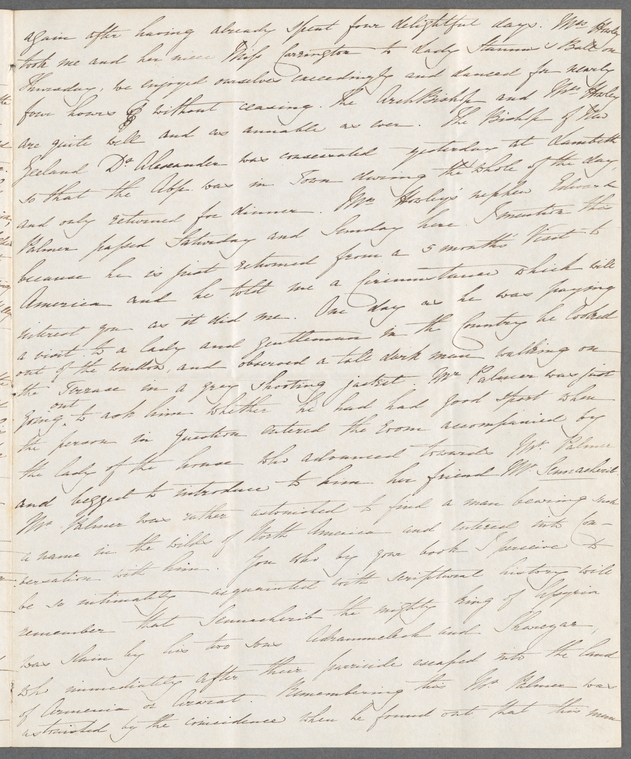 again after having already spent four delightful days. Mrs Howley
took me and her niece Miss Carrington to Lady Ball on
Thursday, we enjoyed ourselves exceedingly and danced for nearly
four hours without ceasing. The ArchBishp and Mrs Howley
are quite well and as amiable as ever. The Bishp of New
Zealand Dr Alexander was consecrated yesterday at Lambeth
so that the Abp. was in Town during the whole of the day,
and only returned for dinner. Mrs Howley's nephew Edward
Palmer passed Saturday and Sunday here I mention this
because he is just returned from a 5 months Visit to
America and he told me a Circumstance which will
interest you as it did me. One day as he was paying
a visit to a lady and gentleman in the Country he looked
out of the window, and observed a tall dark man walking on
the Terrace in a grey shooting jacket. Mr Palmer was just
going out to ask him whether he had had good sport when
the person in question entered the room accompanied by
the lady of the house who advanced towards Mr. Palmer
and begged to introduce to him her friend Mr Sennacherib
Mr Palmer was rather astonished to find a man bearing such
a name in the wilds of North America and entered into con-
versation with him. You who by your book I perceive to
be so intimately acquainted with scriptural history will
remember that Sennacherib the mighty King of Assyria
was slain by his two sons Adrammelech and Sharezar,
who immediately after their parricide escaped into the land
of Armenia or Ararat. Remembering this Mr Palmer was
astonished by the coincidence when he found out that this man